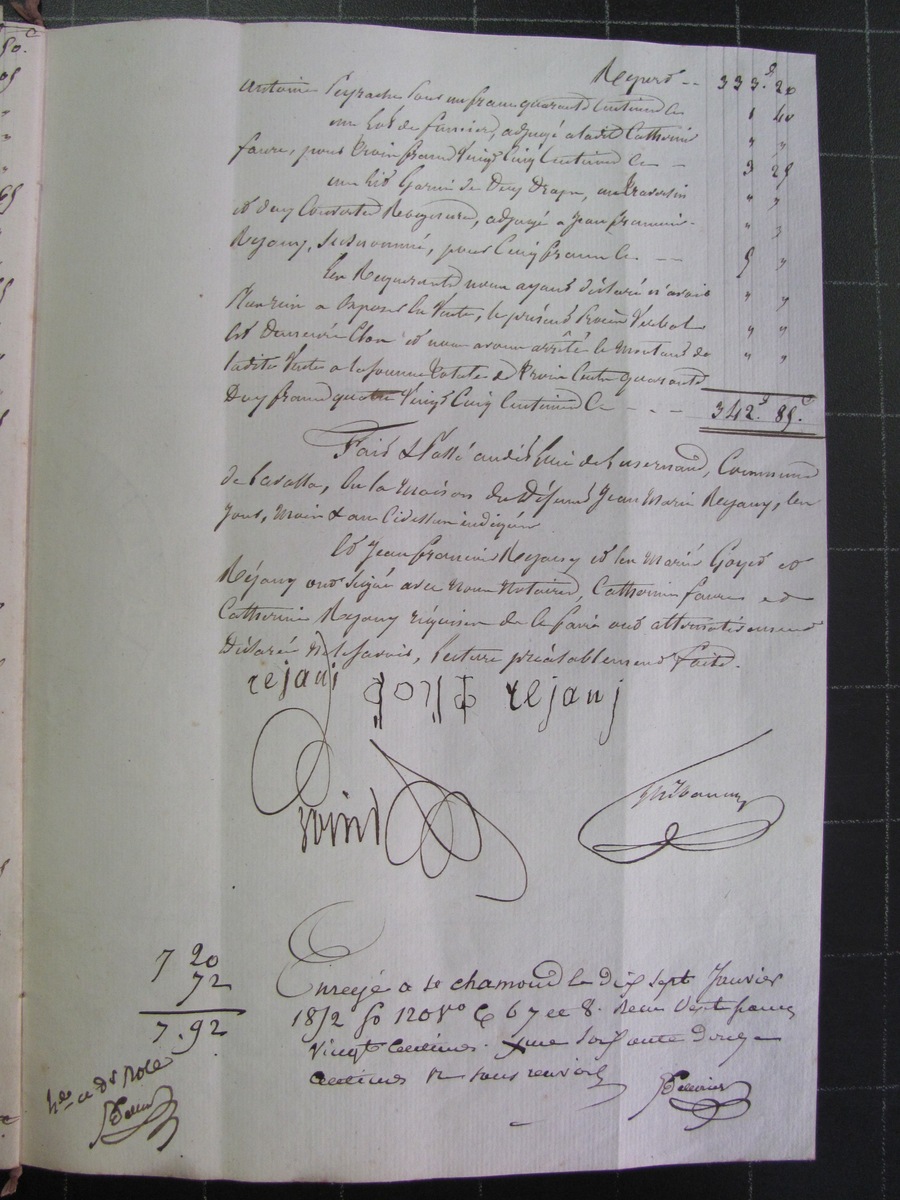 Report -- 333.f 20
Antoine Peyrache pour un franc quarante Centimes Ce 1 40
une hot de fumier, adjugé a ladite Catherine " "
faure, pour trois francs Vingt Cinq Centimes Ce - 3 25
un lit Garni de Deux Draps, un traversin " "
et deux Couvertes, adjugé a Jean françois " "
Rejany, Susnommé, pour Cinq francs Ce -- 5 "
Les Requerants nous ayant déclaré n'avoir " "
Plus rien a Exposer En Vente, le présent Procès Verbal " "
Est Demeuré Clos et nous avons arrêté le Montant de " "
ladite Vente a la somme totale de trois Cents quarante
Deux francs quatre Vingt Cinq Centimes Ce - - - 342.f 85.c
Fait & Passé audit lieu de Luzernaud, Commune
de Lavalla, En la Maison du Défunt Jean Marie Rejany, les
Jour, Mois & an Cidessus indiqués
Et Jean françois Rejany et les Mariés Goyet et
Réjany ont signé avec Nous Notaires, Catherine faure et
Catherine Rejany requises de le faire ont alternativement
Déclaré ne le Savoir, lecture préalablement faite.
rejanj rejanj
Enregé a st chamond le dix sept Janvier
1812 fo 120 vo C 6 7 et 8. Reçu sept francs
vingt Centimes. plus soixante douze
Centimes pr sans renvoi
7 20
72
7.92